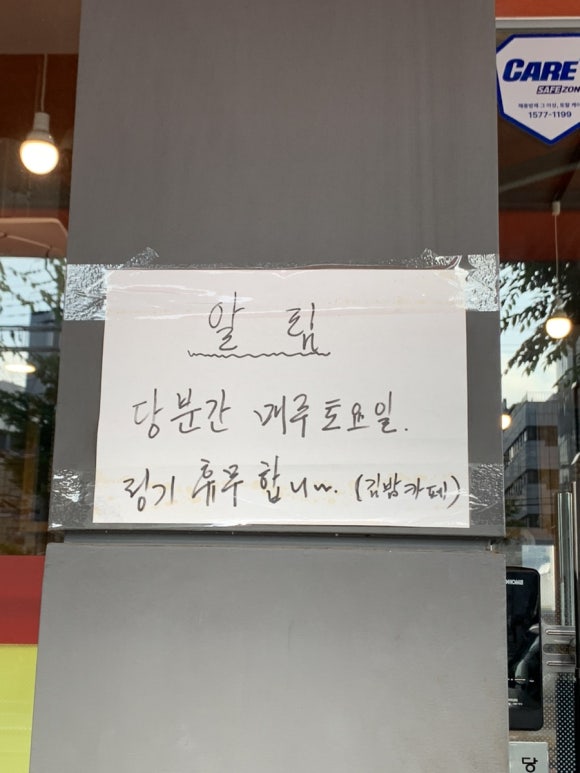 CARE
SAFEZON
1577-1199
알 림
당분간 매주 토요일.
정기 휴무 합니다. (김밥카페)
당